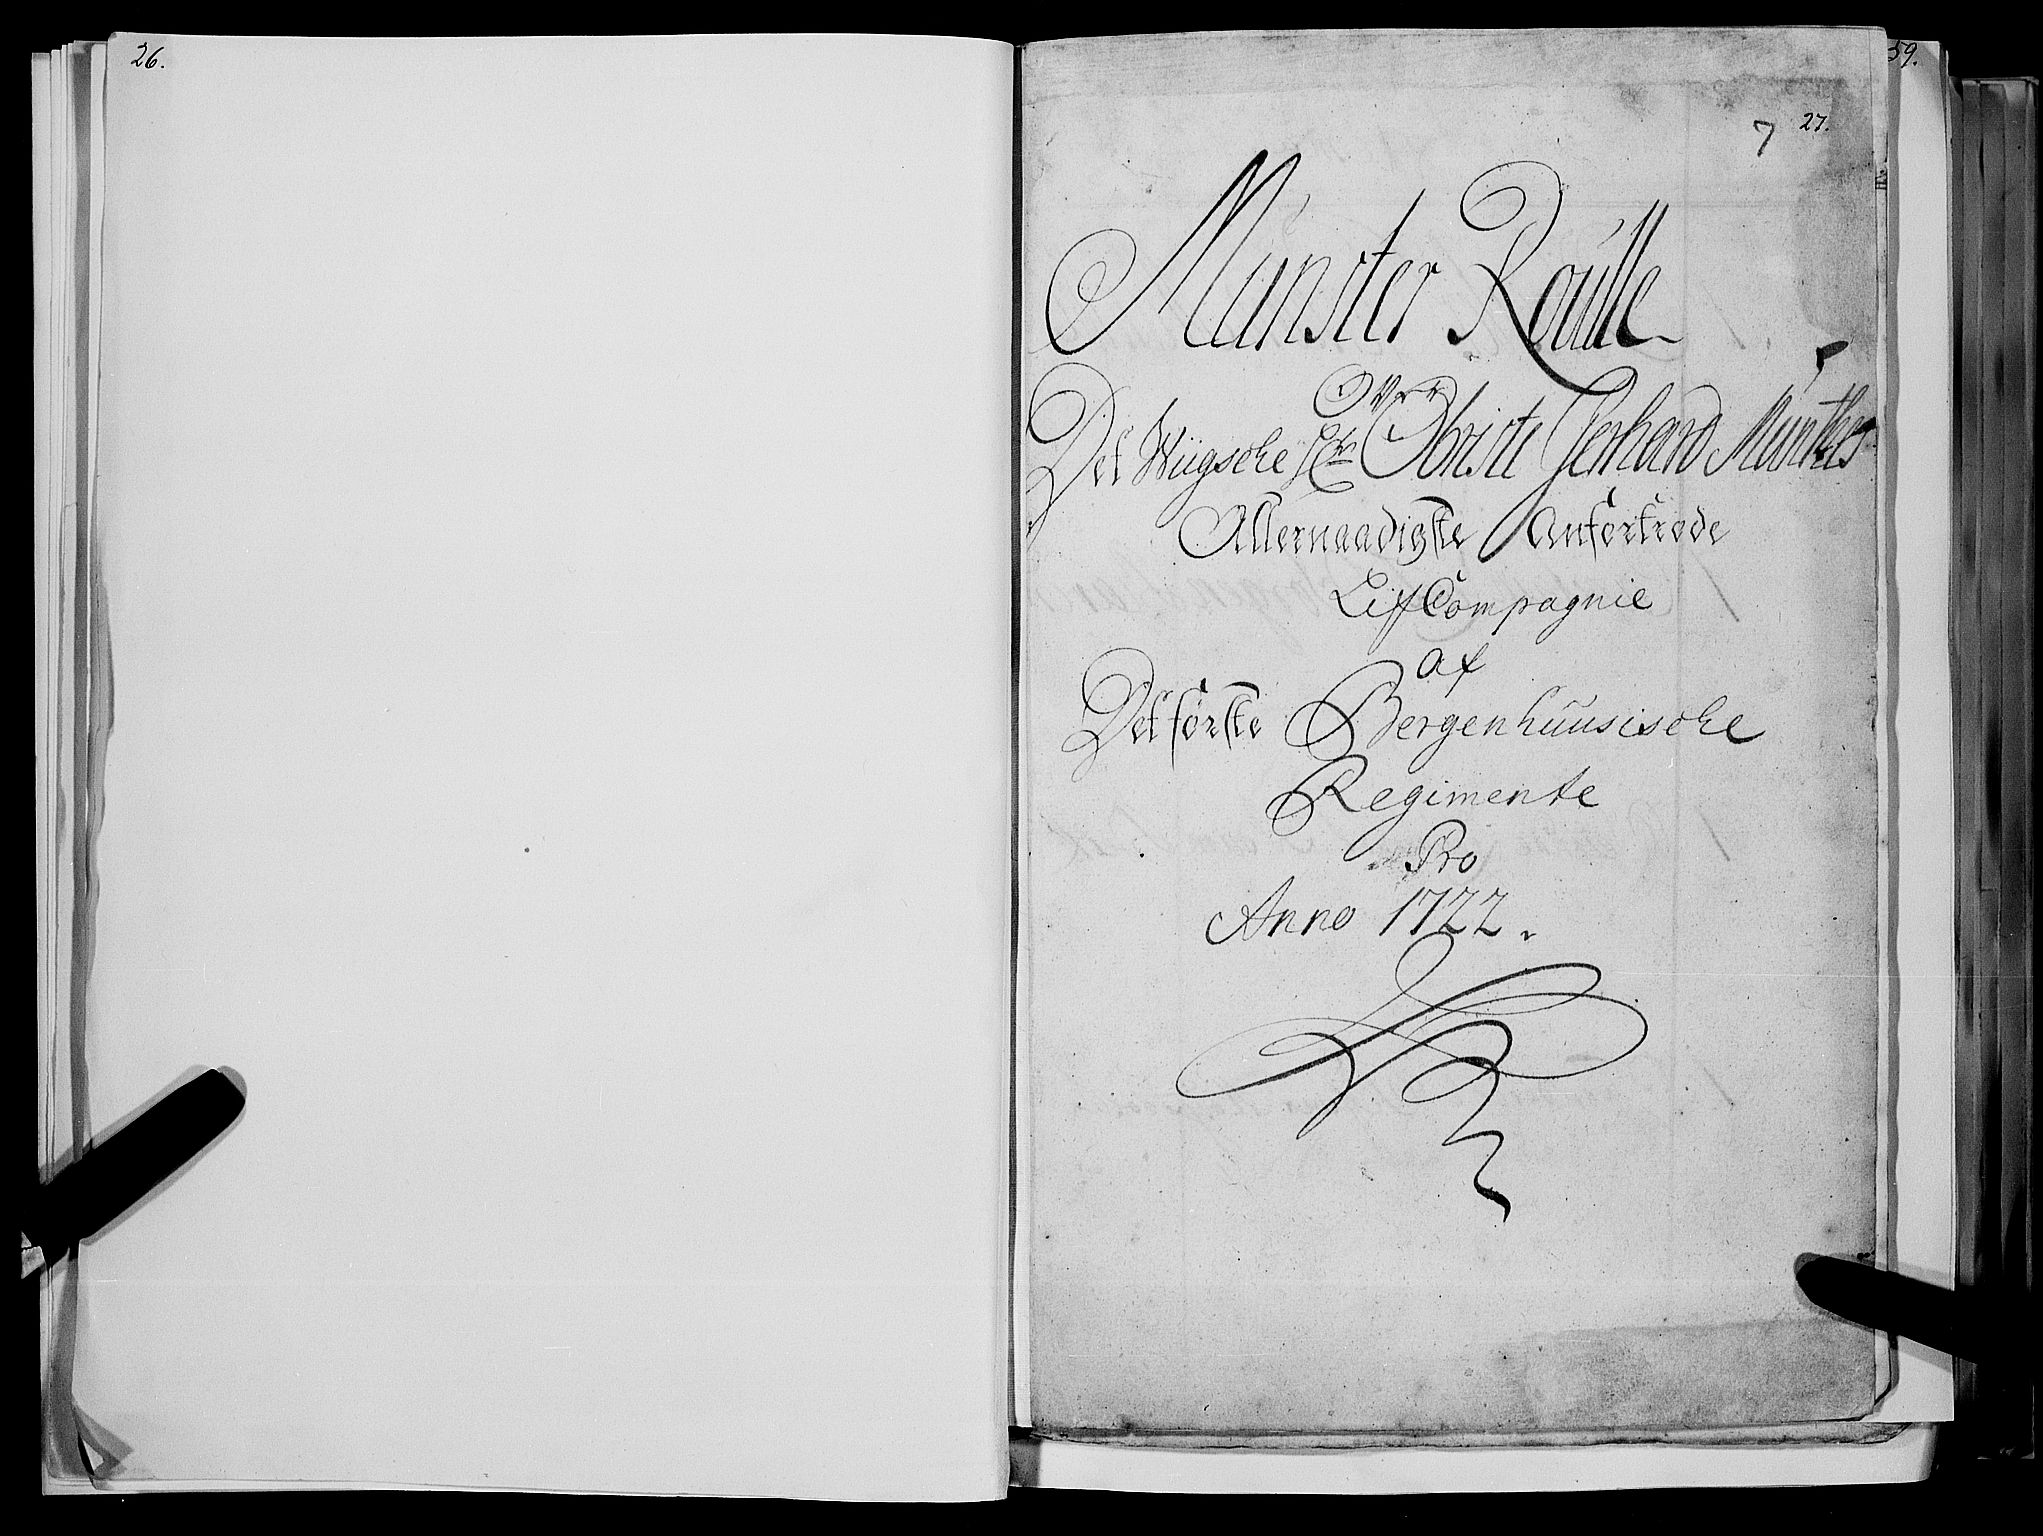 26.
59.
7 27.
Munster Roulle
Over
Det Wiigsche Hr Obriste Gerhard Munthes
Allernaadigste Anfortrode
Liff Compagnie
af
Det første Bergenhuusische
Regimente
Pro
Anno 1722.